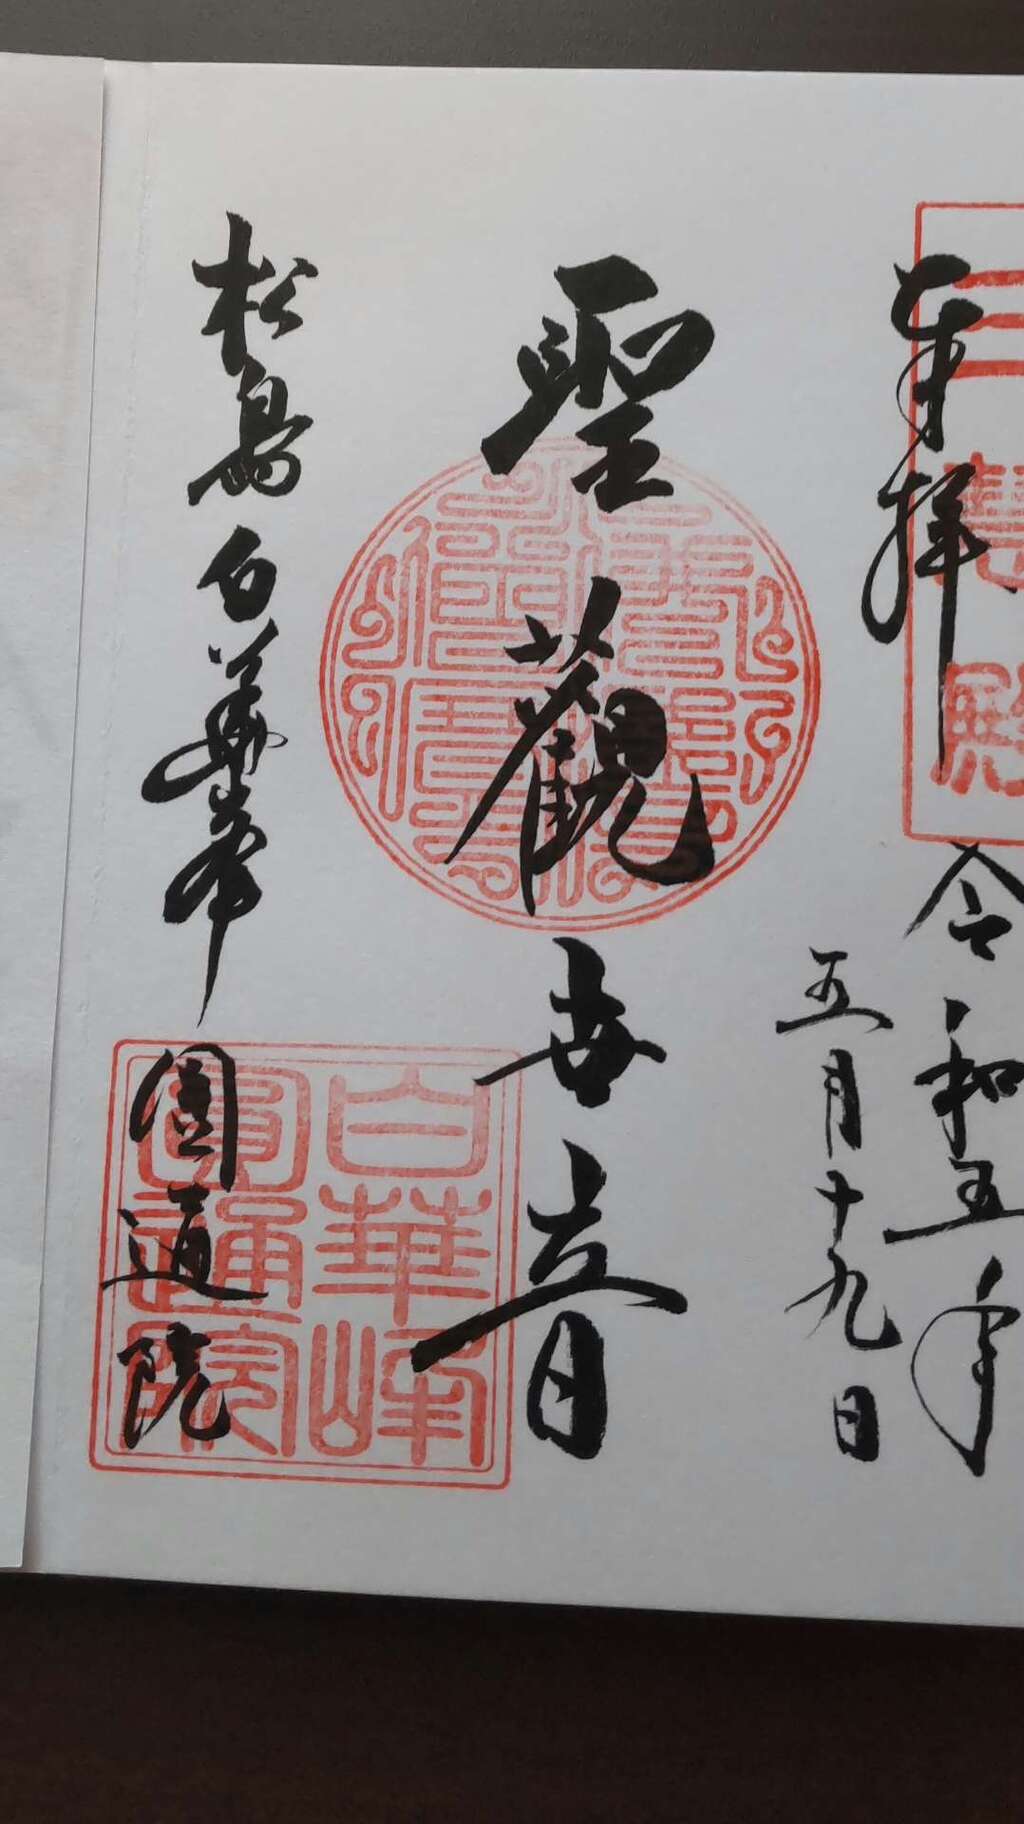 奉拝
三慧殿
令和五年
五月十九日
聖觀世音
松島白華峰
圓通院
白華峰
圓通院